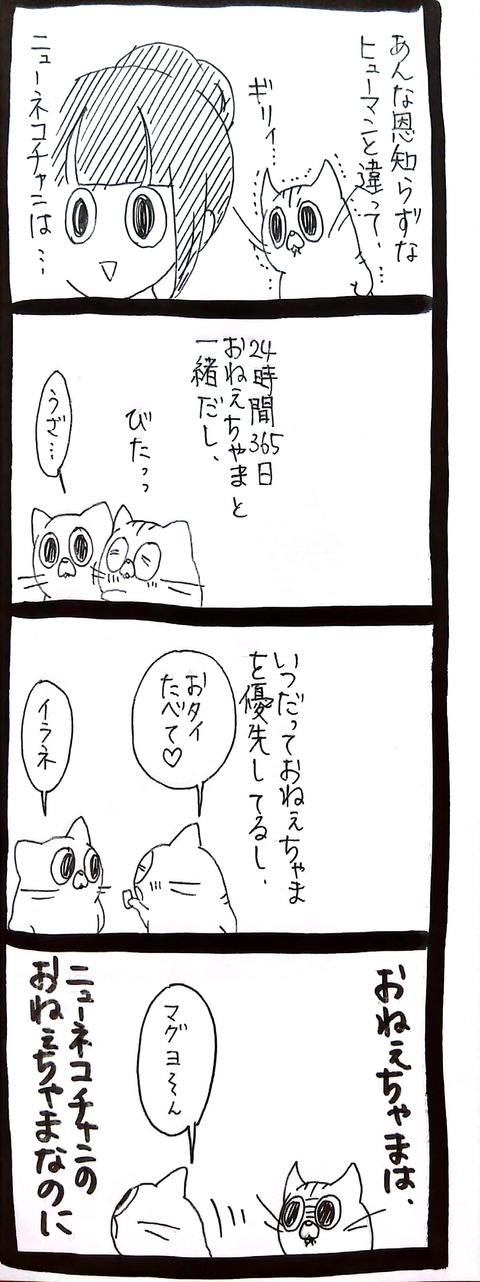 あんな恩知らずな
ヒューマンと違って、
ギリィ…
ニューネコチャンは…
24時間365日
おねぇちゃまと
一緒だし、
びたっっ
うざ…
いつだっておねぇちゃま
を優先してるし、
おタイ
たべて♡
イラネ
おねぇちゃまは、
マグヨそん
ニューネコチャンの
おねぇちゃまなのに